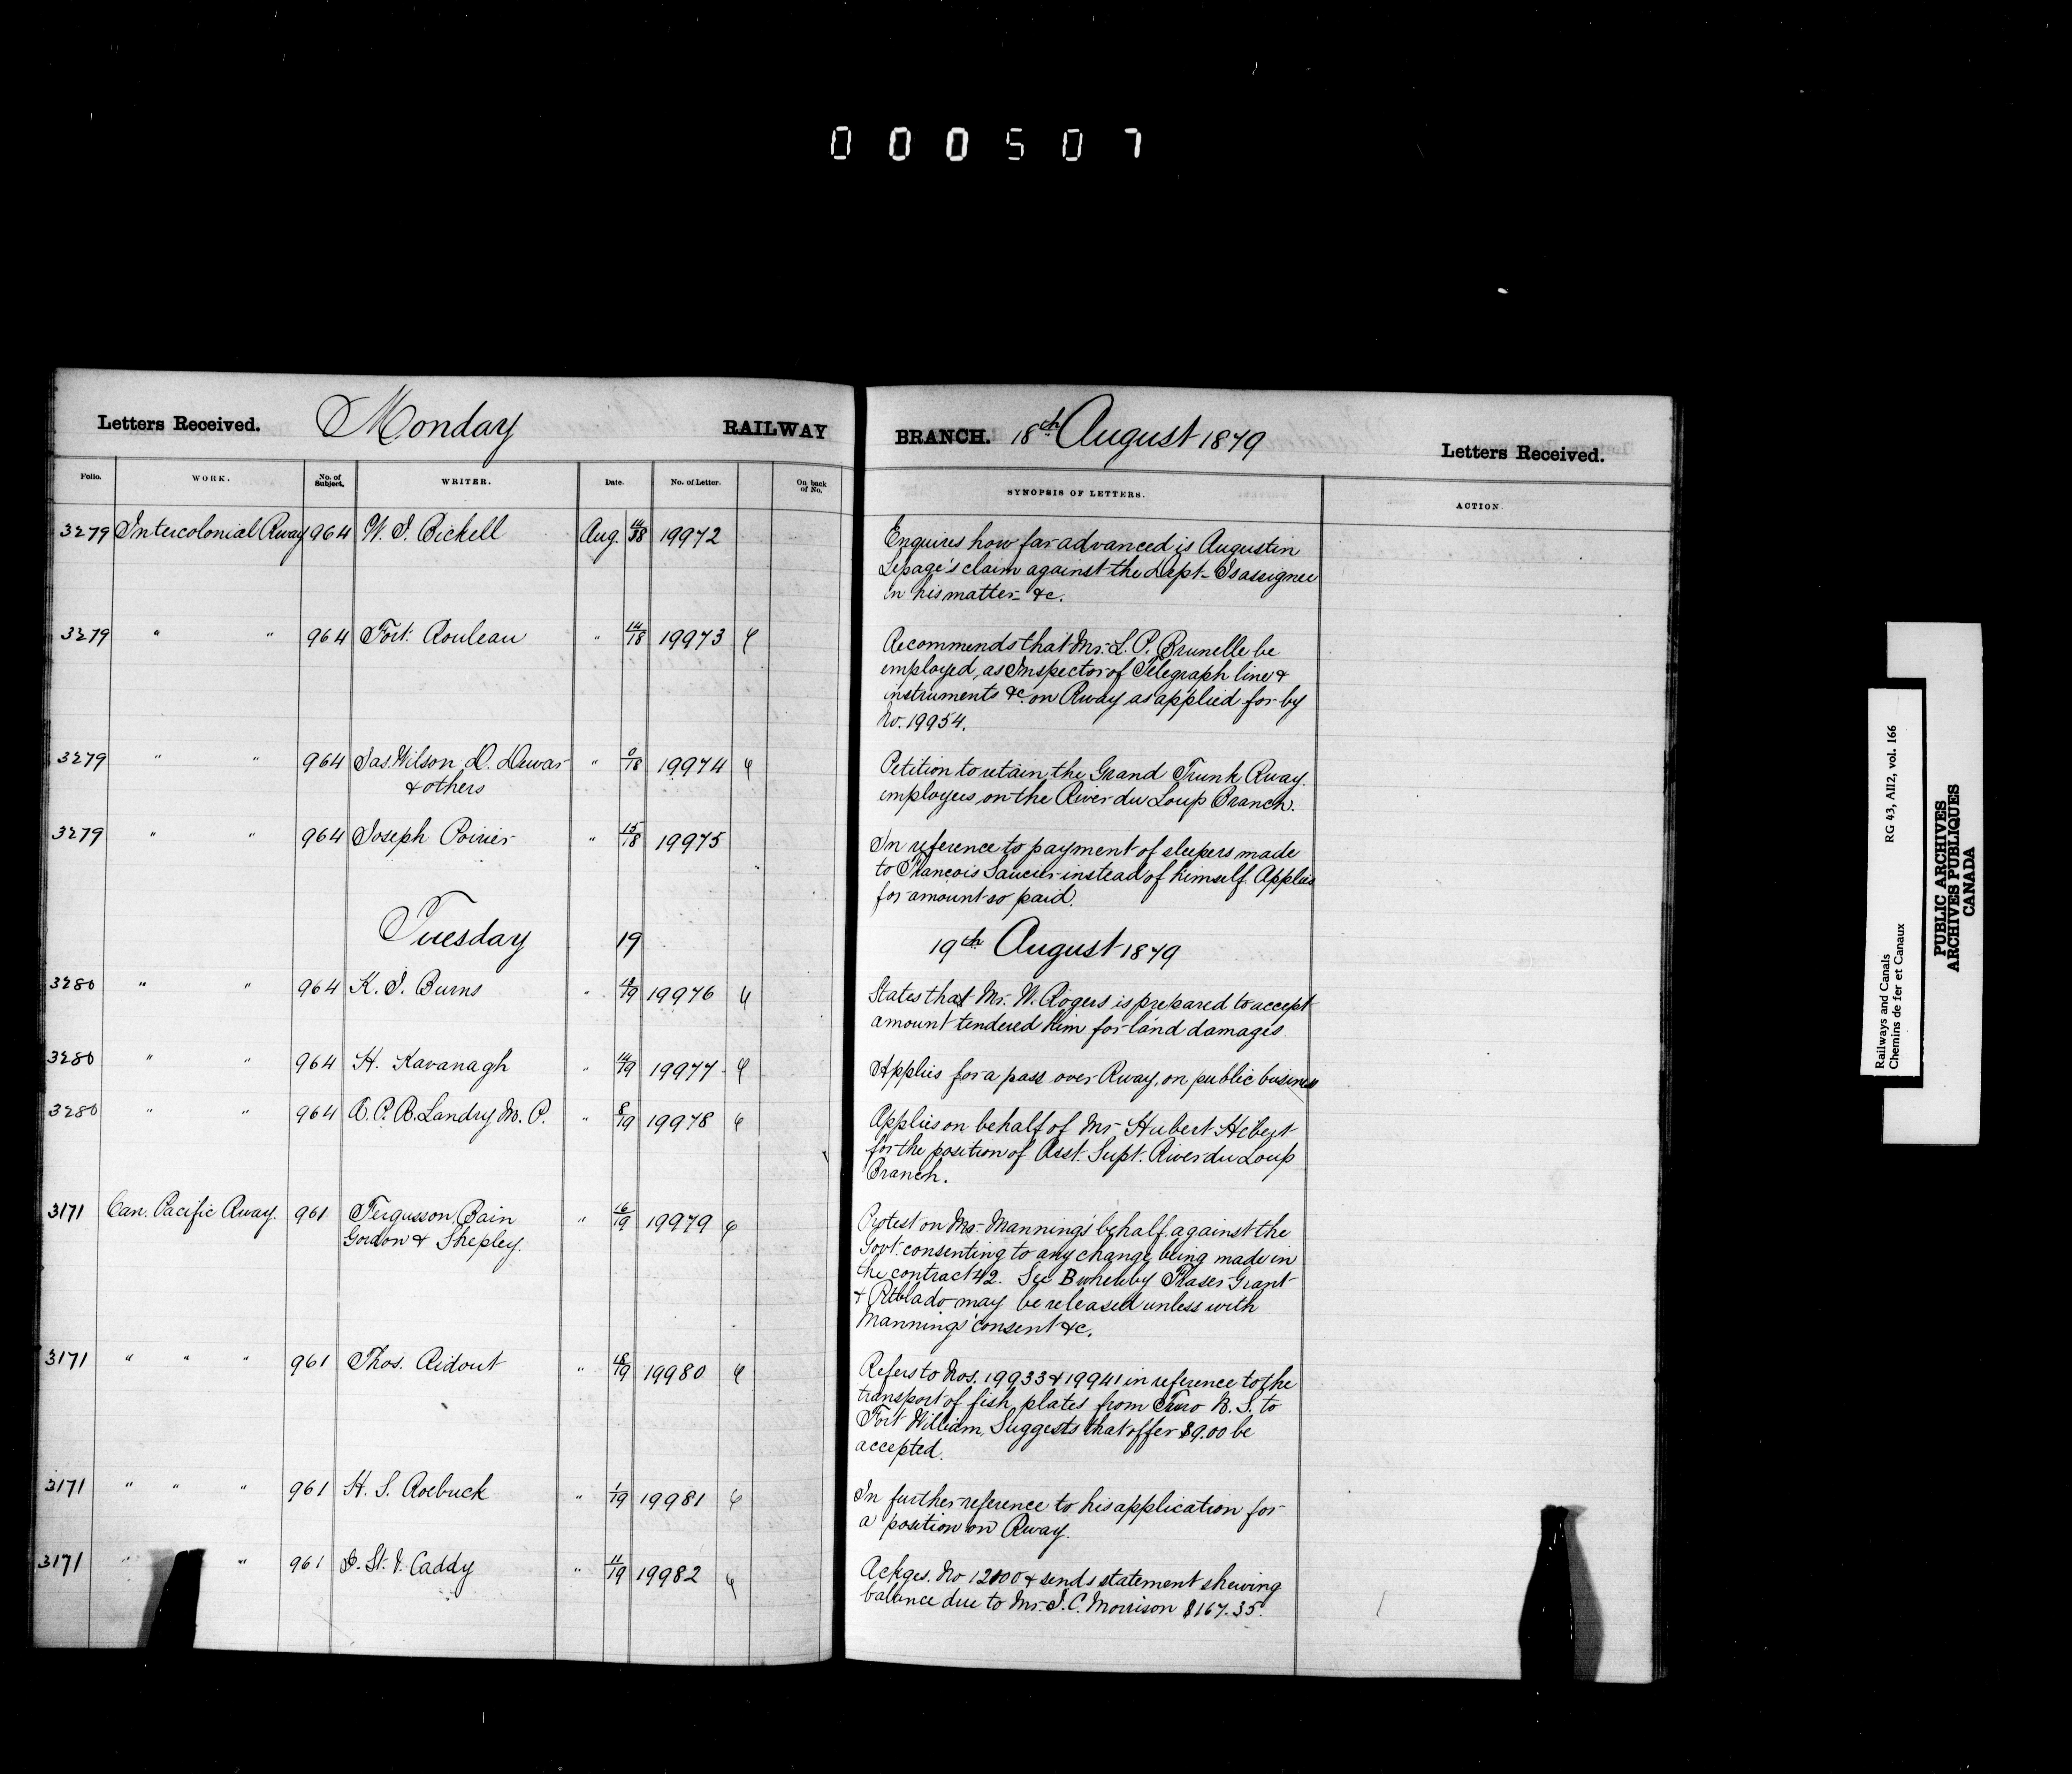 000507
Letters Received. Monday RAILWAY BRANCH. 18th August 1879 Letters Received.
Folio. WORK. No. of Subject. WRITER. Date. No. of Letter. On back of No. SYNOPSIS OF LETTERS. ACTION.
3279 Intercolonial Rway 964 W. I. Bickell Aug. 14/18 19972 Enquires how far advanced is Augustin
Lepage's claim against the Dept. Is assignee
in his matter &c.
3279 " " 964 Fort: Rouleau " 14/18 19973 Recommends that Mr. L. P. Brunelle be
employed, as Inspector of Telegraph line &
instruments &c. on Rway as applied for by
No. 19954.
3279 " " 964 Jas. Wilson D. Dewar " 0/18 19974 Petition to retain the Grand Trunk Rway.
& others employees, on the River du Loup Branch.
3279 " " 964 Joseph Poirier " 15/18 19975 In reference to payment of sleepers made
to Francois Saucier instead of himself. Applies
for amount so paid.
Tuesday 19 19th August 1879
3280 " " 964 K. F. Burns " /19 19976 States that Mr. W. Rogers is prepared to accept
amount tendered him for land damages.
3280 " " 964 H. Kavanagh " 14/19 19977 Applies for a pass over Rway, on public business
3280 " " 964 A. P. R. Landry, M. P. " 8/19 19978 Applies on behalf of Mr. Hubert Hebert
for the position of Asst. Supt. River du Loup
Branch.
3171 Can. Pacific Rway. 961 Fergusson, Bain " 16/19 19979 Protest on Mr. Manning's behalf against the
Gordon & Shepley. Govt. consenting to any change being made in
the contract 42. Sec B whereby Fraser Grant
& Pitblado may be released unless with
Mannings' consent &c.
3171 " " " 961 Thos. Ridout " 18/19 19980 Refers to Nos. 19933 & 19941 in reference to the
transport of fish plates from Truro N. S. to
Fort William, Suggests that offer $9.00 be
accepted.
3171 " " " 961 H. S. Roebuck " 1/19 19981 In further reference to his application for
a position on Rway.
3171 " " 961 J. St. V. Caddy " 11/19 19982 Ackges. No 12100 & sends statement shewing
balance due to Mr. J. C. Morrison $167.35.
Railways and Canals RG 43, AII2, vol. 166
Chemins de fer et Canaux
PUBLIC ARCHIVES
ARCHIVES PUBLIQUES
CANADA